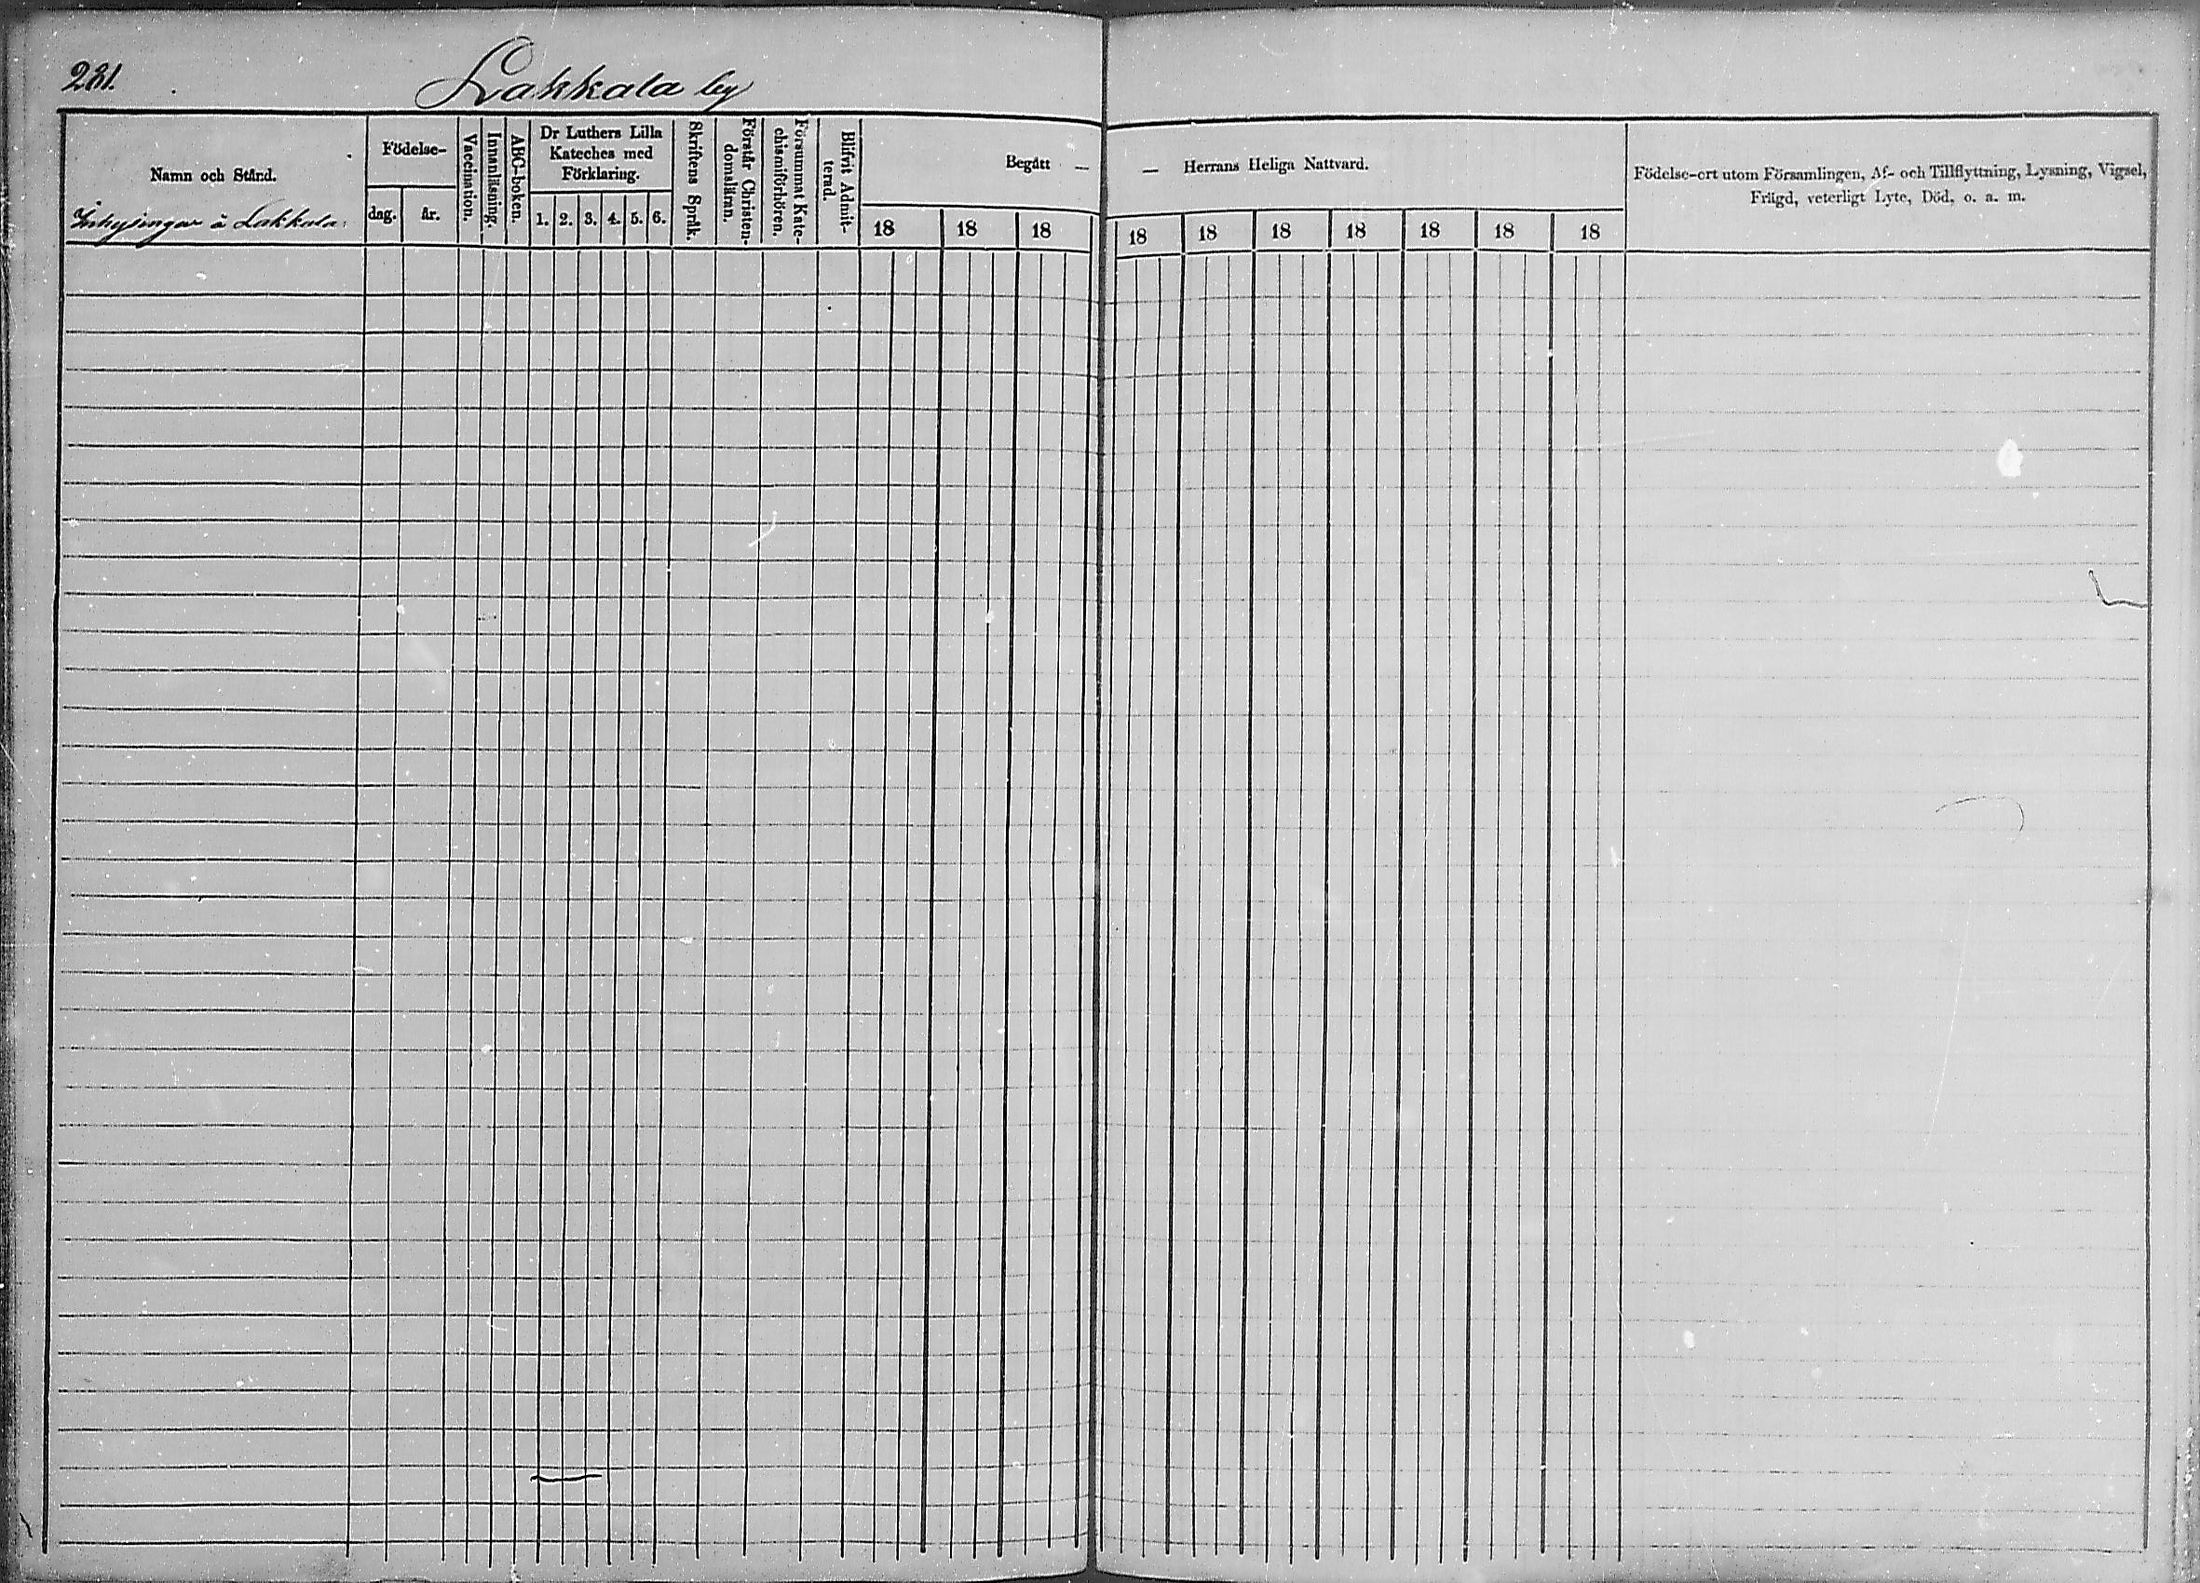 281.
Lakkala by
Namn och Stånd.
Inhysingar å Lakkala.
Födelse-
dag.
år.
Vaccination.
Innanläsning.
ABC-boken.
Dr Luthers Lilla
Kateches med
Förklaring.
1. 2. 3. 4. 5. 6.
Skriftens Språk.
Förstår Christen-
domsläran.
Försummat Kate-
chismiförhören.
Blifvit Admit-
terad.
Begått —
18 18 18
— Herrans Heliga Nattvard.
18 18 18 18 18 18 18
Födelse-ort utom Församlingen, Af- och Tillflyttning, Lysning, Vigsel,
Frägd, veterligt Lyte, Död, o. a. m.